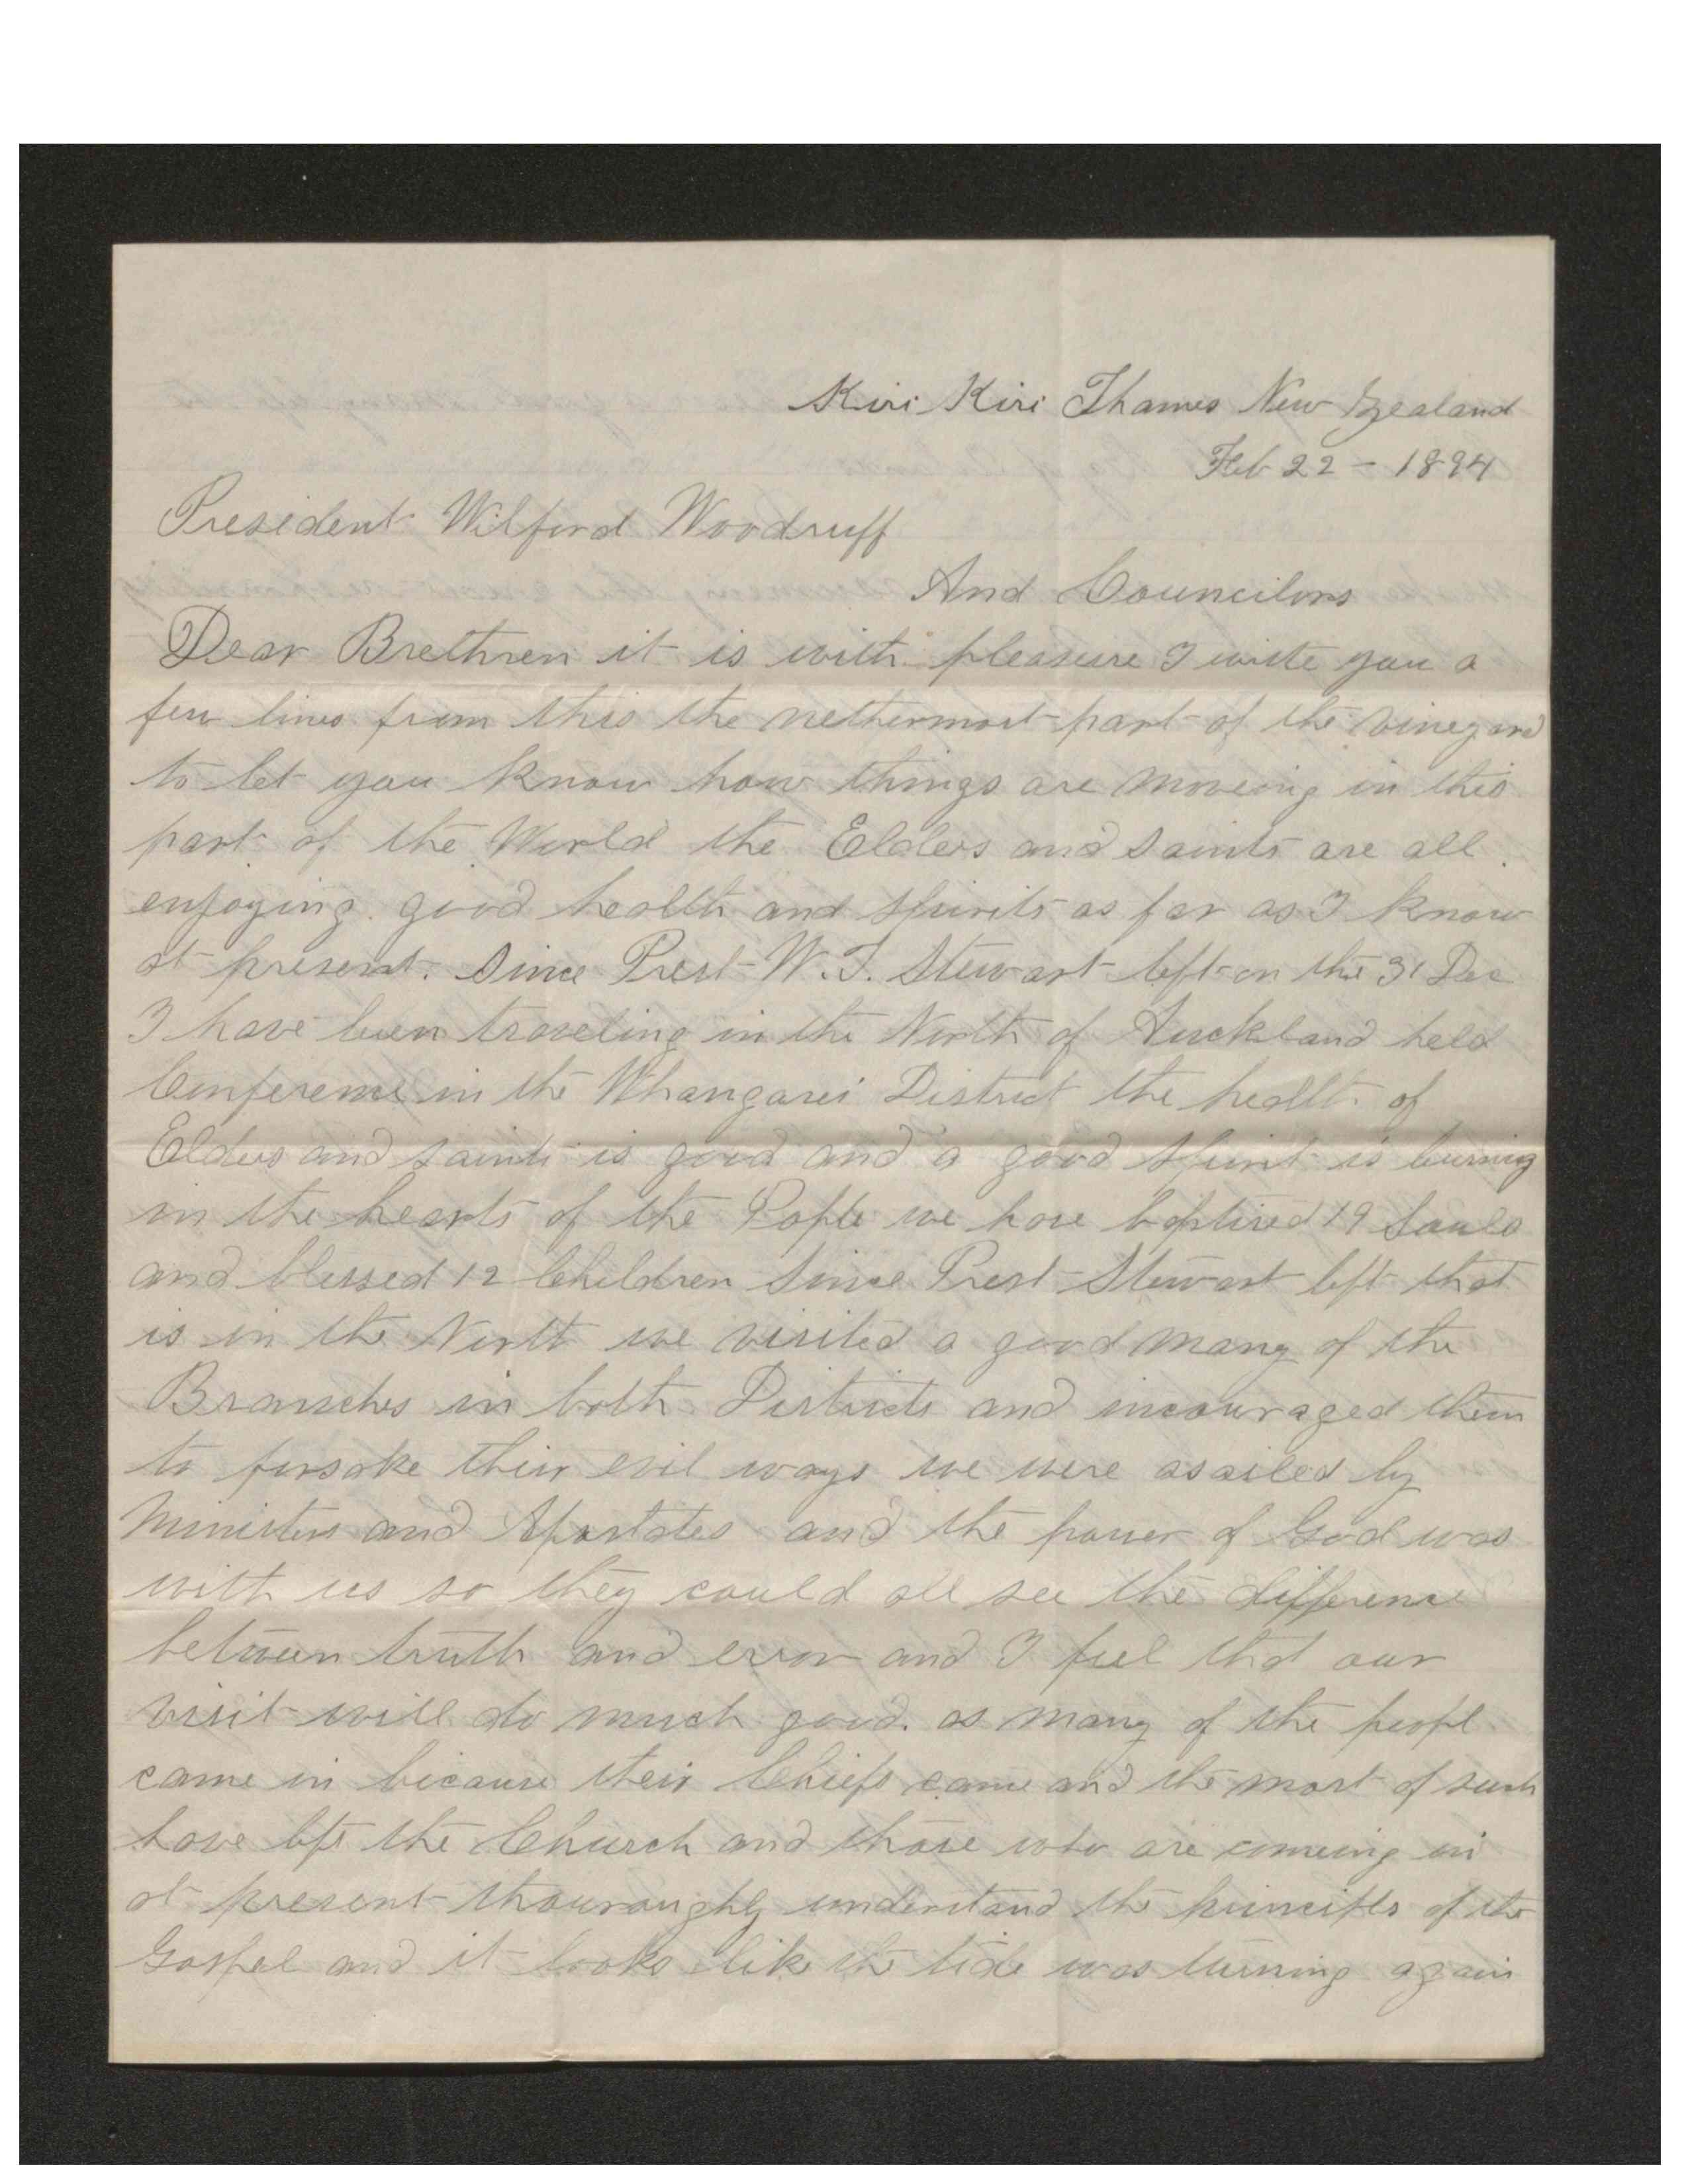 Kiri Kiri Thames New Zealand
Feb 22 - 1894
President Wilford Woodruff
And Councilors
Dear Brethren it is with pleasure I write you a
few lines from this the nethermost part of the vineyard
to let you know how things are moveing in this
part of the World the Elders and Saints are all
enjoying good health and spirits as far as I know
at present. Since Prest W.T. Stewart left on the 31 Dec
I have been traveling in the North of Auckland held
Conference in the Whangarei District the health of
Elders and saints is good and a good spirit is burning
in the hearts of the Pople we have baptised 19 Souls
and blessed 12 Children Since Prest Stewart left that
is in the North we visited a good many of the
Branches in both Districts and incouraged them
to forsake their evil ways we were assailed by
Ministers and Apostates and the power of God was
with us so they could all see the difference
between truth and error and I feel that our
visit will do much good. as many of the peopl
came in because their Chiefs came and the most of such
have left the Church and those who are comeing in
at present thouroughly understand the principls of the
Gospel and it looks like the tide was turning again